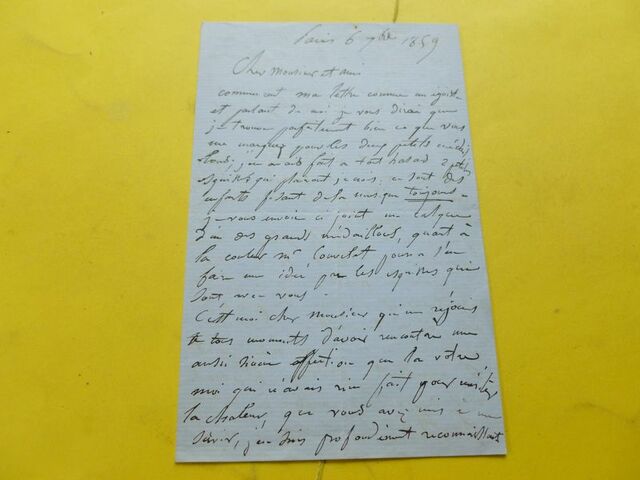 Paris 6 7bre 1859
Cher Monsieur et ami
commencant ma lettre comme un egoiste
et parlant de moi je vous dirai que
je trouve parfaitement bien ce que vous
me marquez pour les deux petits médaillons
j'en avais fait a tout hasard 2 ptes
esquisses qui plairont je crois, ce sont des
enfants faisant de la musique toujours
je vous envoie ci joint un calque
d'un des grands médaillons, quant à
la couleur Mr pourra s'en
faire une idée par les esquisses qui
sont avec vous.
C'est moi cher Monsieur qui me réjouis
à tous moments d'avoir rencontré une
aussi sincère affection que la vôtre
moi qui n'avais rien fait pour mériter
la chaleur que vous avez mis à me
servir, j'en suis profondément reconnaissant